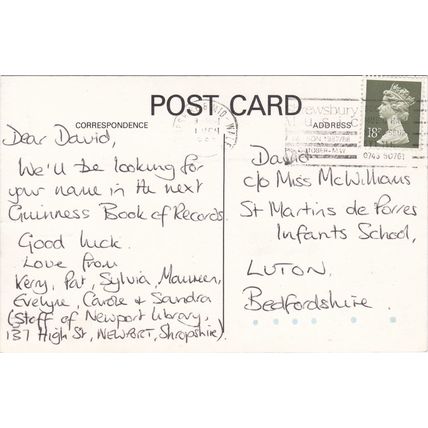 POST CARD
CORRESPONDENCE
ADDRESS
Dear David,
We'll be looking for
your name in the next
Guinness Book of Records.
Good luck.
Love from
Kerry, Pat, Sylvia, Maureen,
Evelyne, Carole & Sandra
(Staff of Newport Library,
137 High St, NEWPORT, Shropshire).
David
c/o Miss McWilliams
St Martins de Porres
Infants School,
LUTON.
Bedfordshire.
18P
Shrewsbury
0743 50761